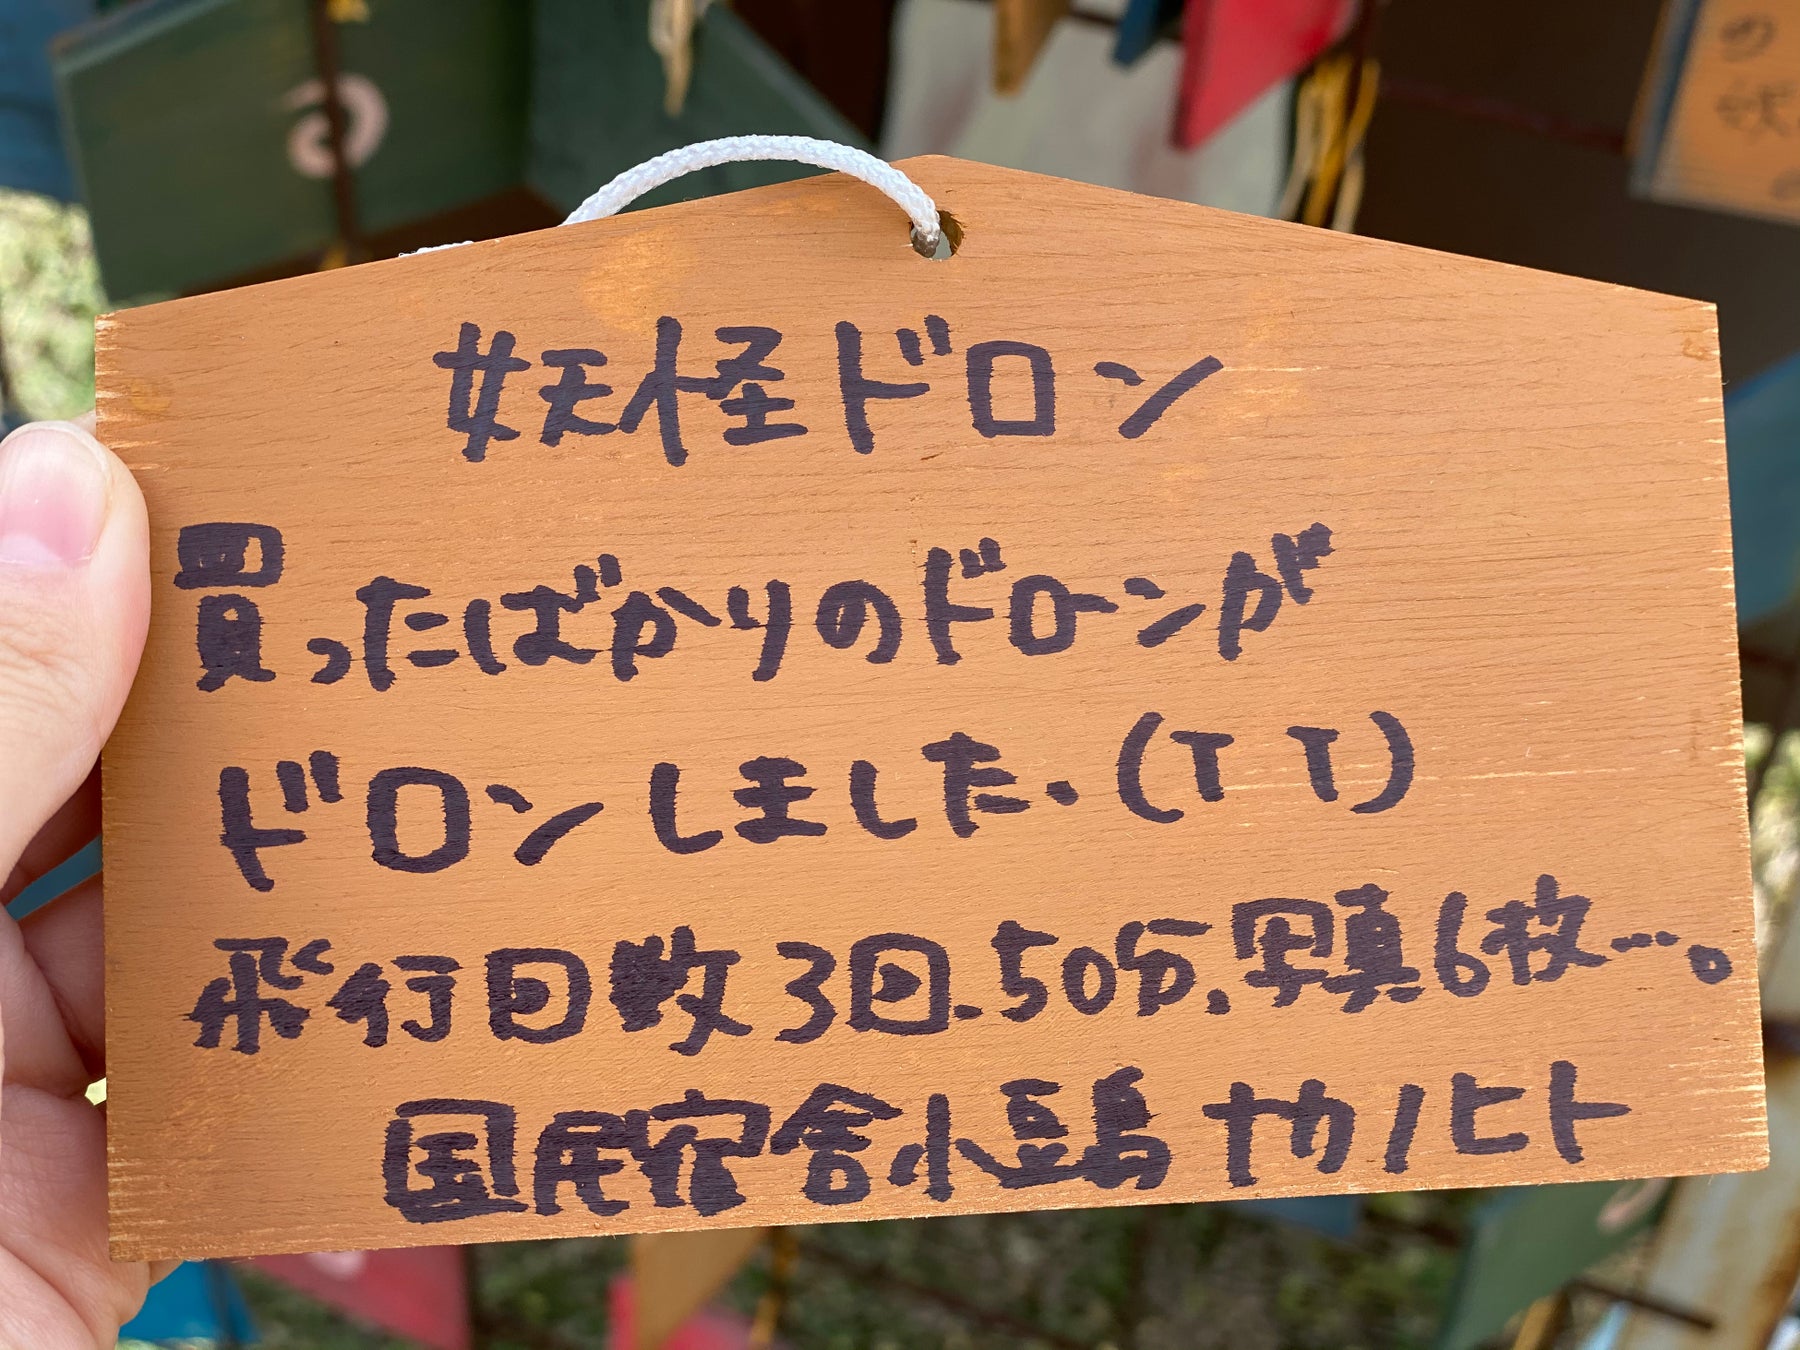 妖怪ドロン
買ったばかりのドローンが
ドロンしました.(TT)
飛行回数3回.50分.写真6枚…。
国民宿舎小豆島 ナカノヒト
の